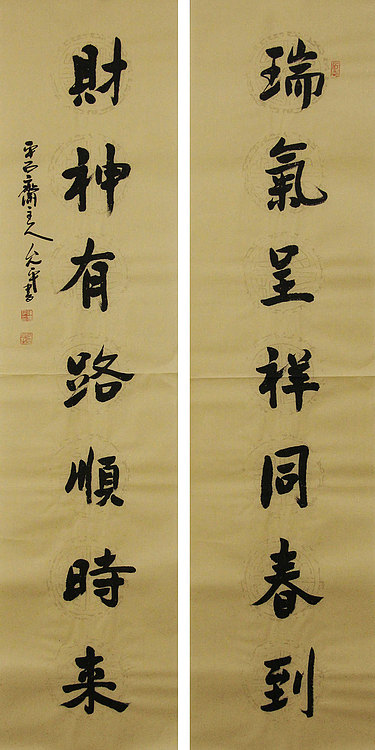 瑞氣呈祥同春到
財神有路順時来
齋主人允平書